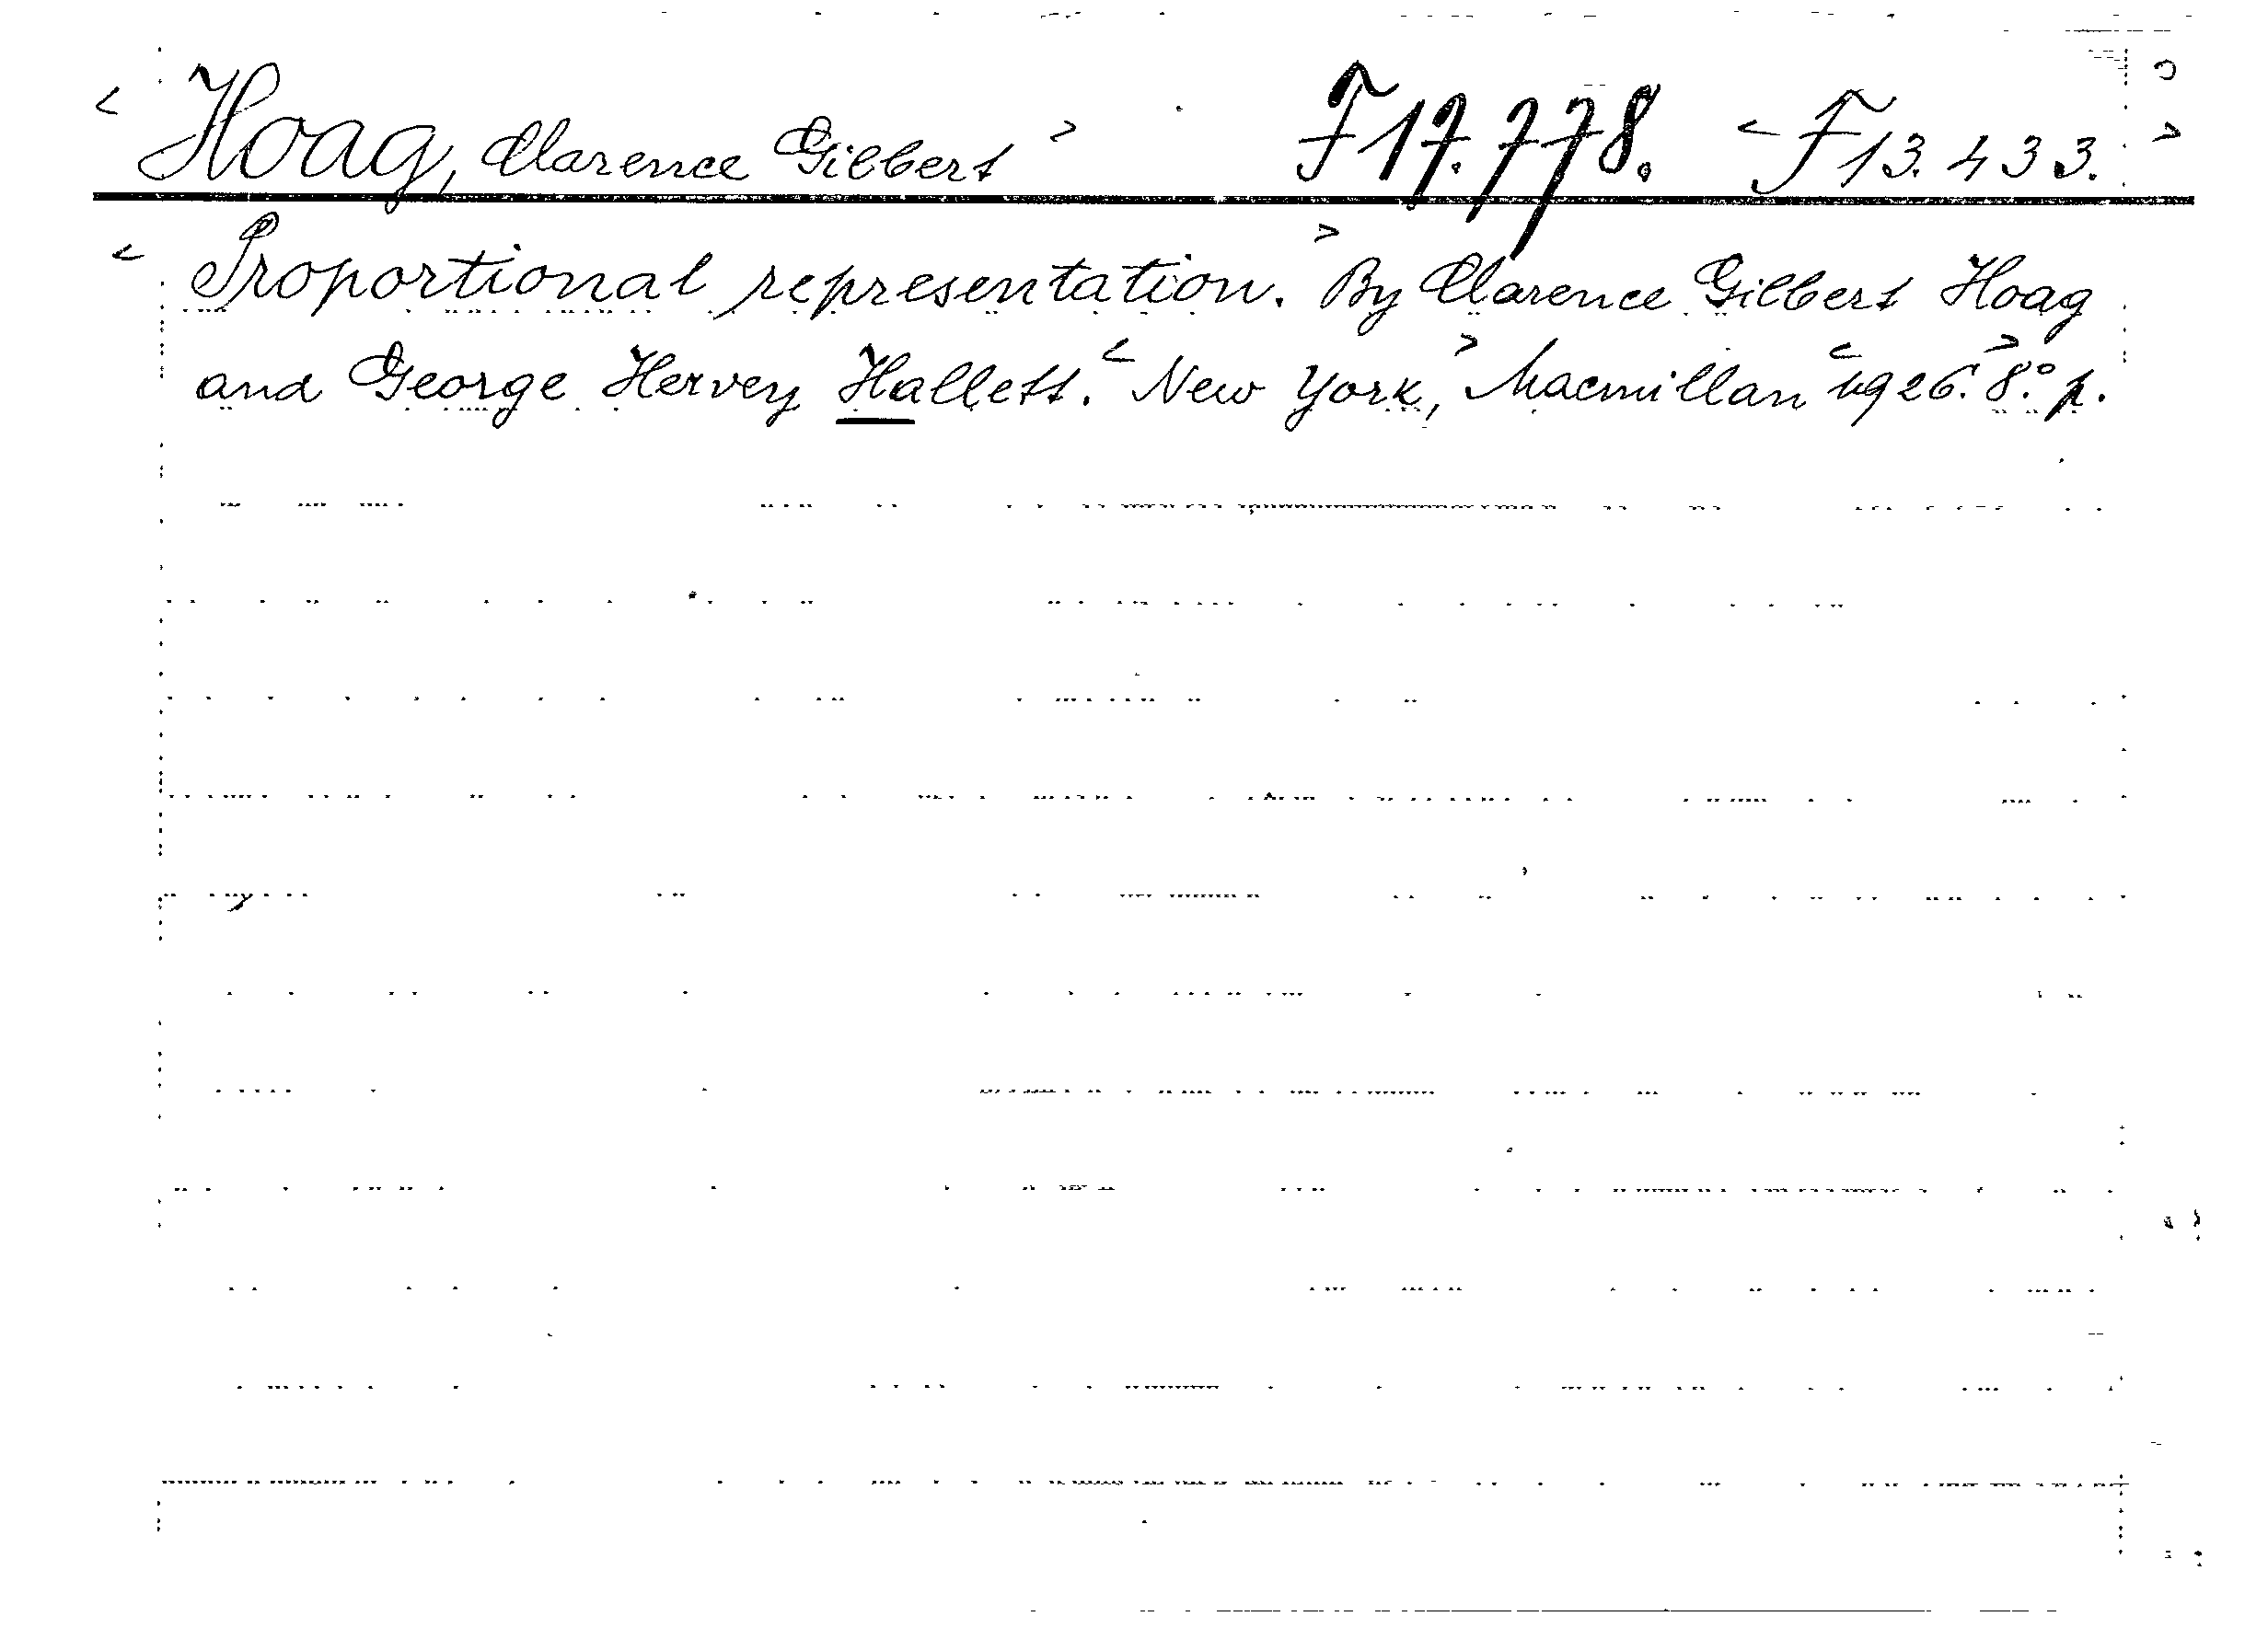 < Hoag, Clarence Gilbert > F 17.778. < F 13.433. >
< Proportional representation. > By Clarence Gilbert Hoag
and George Hervey Hallett. < New York, > Macmillan < 1926. > 8.° p.